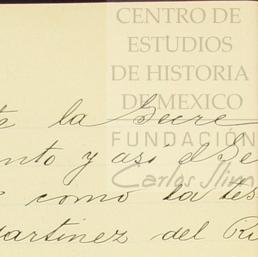 CENTRO DE
ESTUDIOS
DE HISTORIA
DE MEXICO
FUNDACIÓN
Carlos Slim
te la Secre
ento y así el Se
como la tes
artinez del Ri